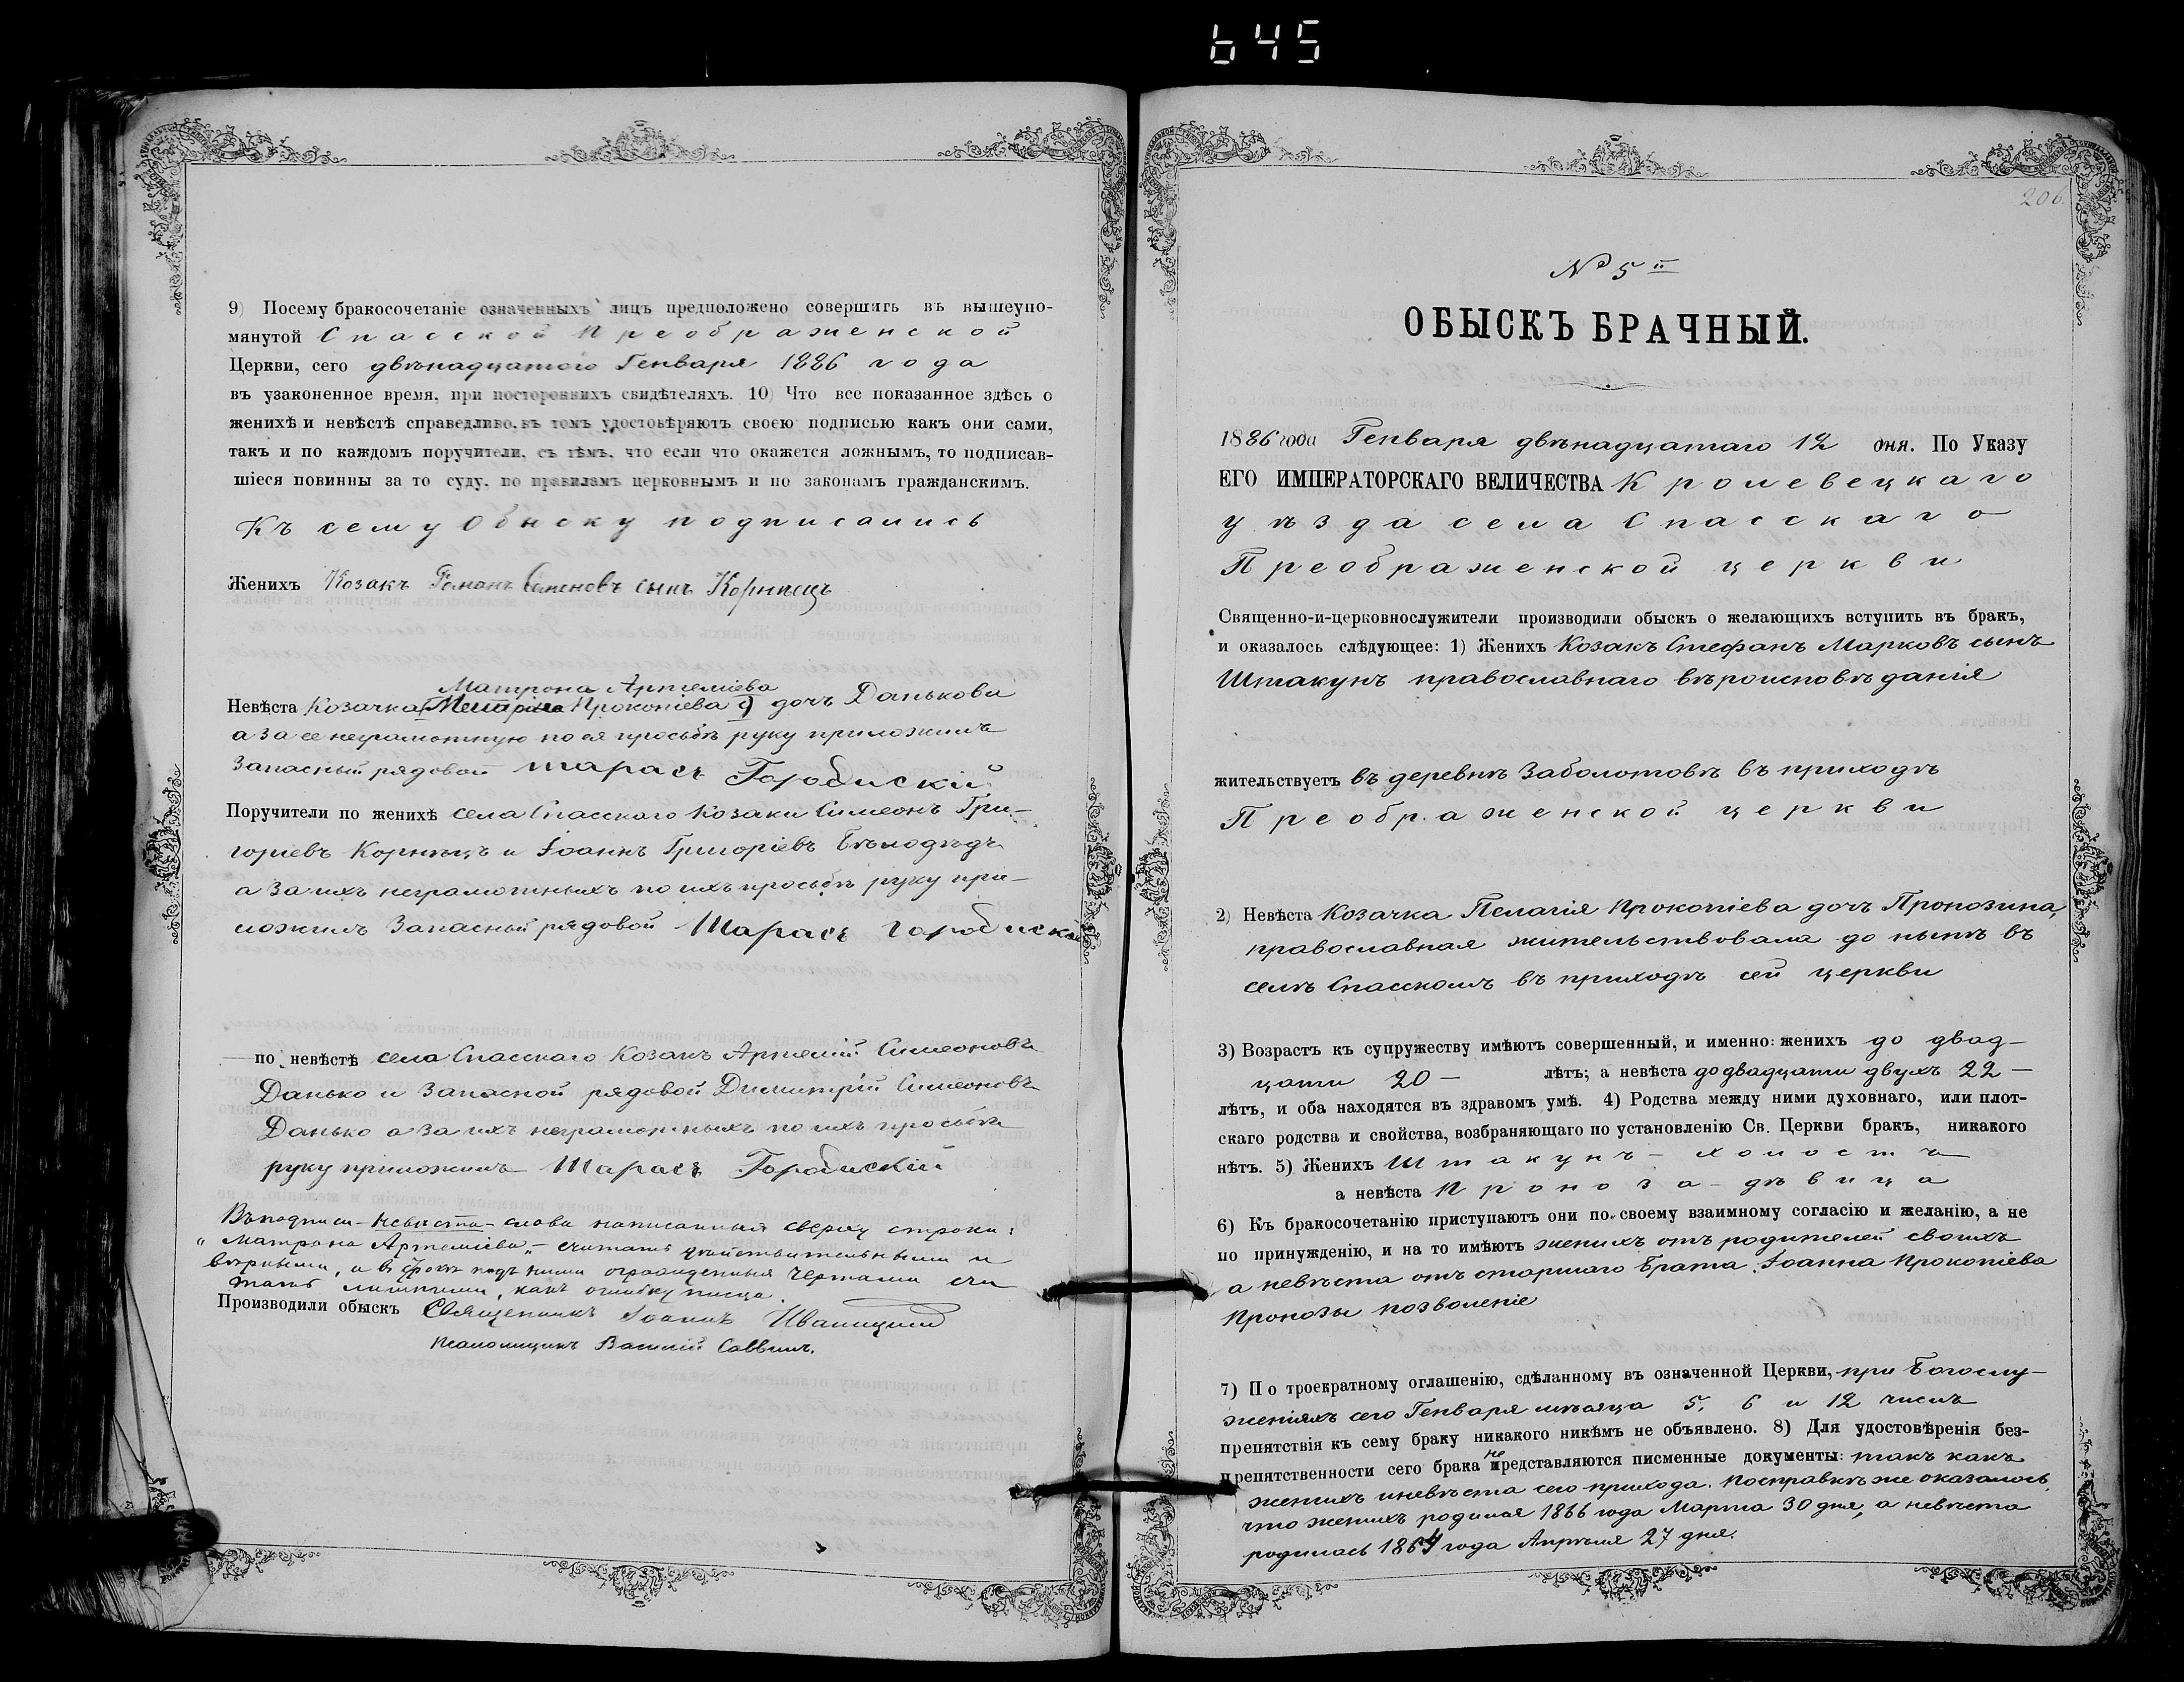 645
9) Посему бракосочетаніе означенныхъ лицъ предположено совершить въ вышеупо-
мянутой Спасской Преображенской
Церкви, сего двѣнадцатого Генваря 1886 года
въ узаконенное время, при постороннихъ свидѣтеляхъ. 10) Что все показанное здѣсь о
женихѣ и невѣстѣ справедливо, въ томъ удостовѣряютъ своею подписью какъ они сами,
такъ и по каждомъ поручители, съ тѣмъ, что если что окажется ложнымъ, то подписав-
шіеся повинны за то суду, по правиламъ церковнымъ и по законамъ гражданскимъ.
Къ сему Обыску подписались
Женихъ Козакъ Романъ Семеновъ сынъ Корнѣецъ
Матрона Артеміева
Невѣста Козачка Прокопіева дочь Данькова
а за ее неграмотную по ея просьбѣ руку приложилъ
Запасный рядовой Тарасъ Городискій
Поручители по женихѣ села Спасскаго Козаки Симеонъ Гри-
горіевъ Корнѣецъ и Іоаннъ Григоріевъ Бѣлодѣдъ
а за ихъ неграмотныхъ по ихъ просьбѣ руку при-
ложилъ Запасный рядовой Тарасъ Городиской
по невѣстѣ села Спасскаго Козакъ Артемій Симеоновъ
Данько и Запасной рядовой Димитрій Симеоновъ
Данько а за ихъ неграмотныхъ по ихъ просьбѣ
руку приложилъ Тарасъ Городискій
Въ подписи - Невѣста - слова написанныя сверху строки:
„Матрона Артеміева„ - считать дѣйствительными и
вѣрными, а въ строкѣ подъ ними огражденныя чертами счи
тать лишними, какъ ошибку писца.
Производили обыскъ Священникъ Іоаннъ Иваницкій
Псаломщикъ Василій Саввичъ.
206.
№ 5й
ОБЫСКЪ БРАЧНЫЙ.
1886 года Генваря двѣнадцатаго 12 дня. По Указу
ЕГО ИМПЕРАТОРСКАГО ВЕЛИЧЕСТВА Кролевецкаго
уѣзда села Спасскаго
Преображенской церкви
Священно-и-церковнослужители производили обыскъ о желающихъ вступить въ бракъ,
и оказалось слѣдующее: 1) Женихъ Козакъ Стефанъ Марковъ сынъ
Штакунъ православнаго вѣроисповѣданія
жительствуетъ въ деревнѣ Заболотовѣ въ приходѣ
Преображенской церкви
2) Невѣста Козачка Пелагія Прокопіева дочь Пронозина,
православная жительствовала до нынѣ въ
селѣ Спасскомъ въ приходѣ сей церкви
3) Возрастъ къ супружеству имѣютъ совершенный, и именно: женихъ до двад-
цати 20 - лѣтъ; а невѣста до двадцати двухъ 22 -
лѣтъ, и оба находятся въ здравомъ умѣ. 4) Родства между ними духовнаго, или плот-
скаго родства и свойства, возбраняющаго по установленію Св. Церкви бракъ, никакого
нѣтъ. 5) Женихъ Штакунъ - холостъ
а невѣста Проноза - дѣвица
6) Къ бракосочетанію приступаютъ они по своему взаимному согласію и желанію, а не
по принужденію, и на то имѣютъ женихъ отъ родителей своихъ
а невѣста отъ старшаго брата Іоанна Прокопіева
Пронозы позволеніе
7) По троекратному оглашенію, сдѣланному въ означенной Церкви, при Богослу-
женіяхъ сего Генваря мѣсяца 5, 6 и 12 числъ
препятствія къ сему браку никакого никѣмъ не объявлено. 8) Для удостовѣренія без-
препятственности сего брака не представляются писменные документы: такъ какъ
женихъ и невѣста сего прихода. По справкѣ же оказалось,
что женихъ родился 1866 года Марта 30 дня, а невѣста
родилась 1864 года Апрѣля 27 дня.